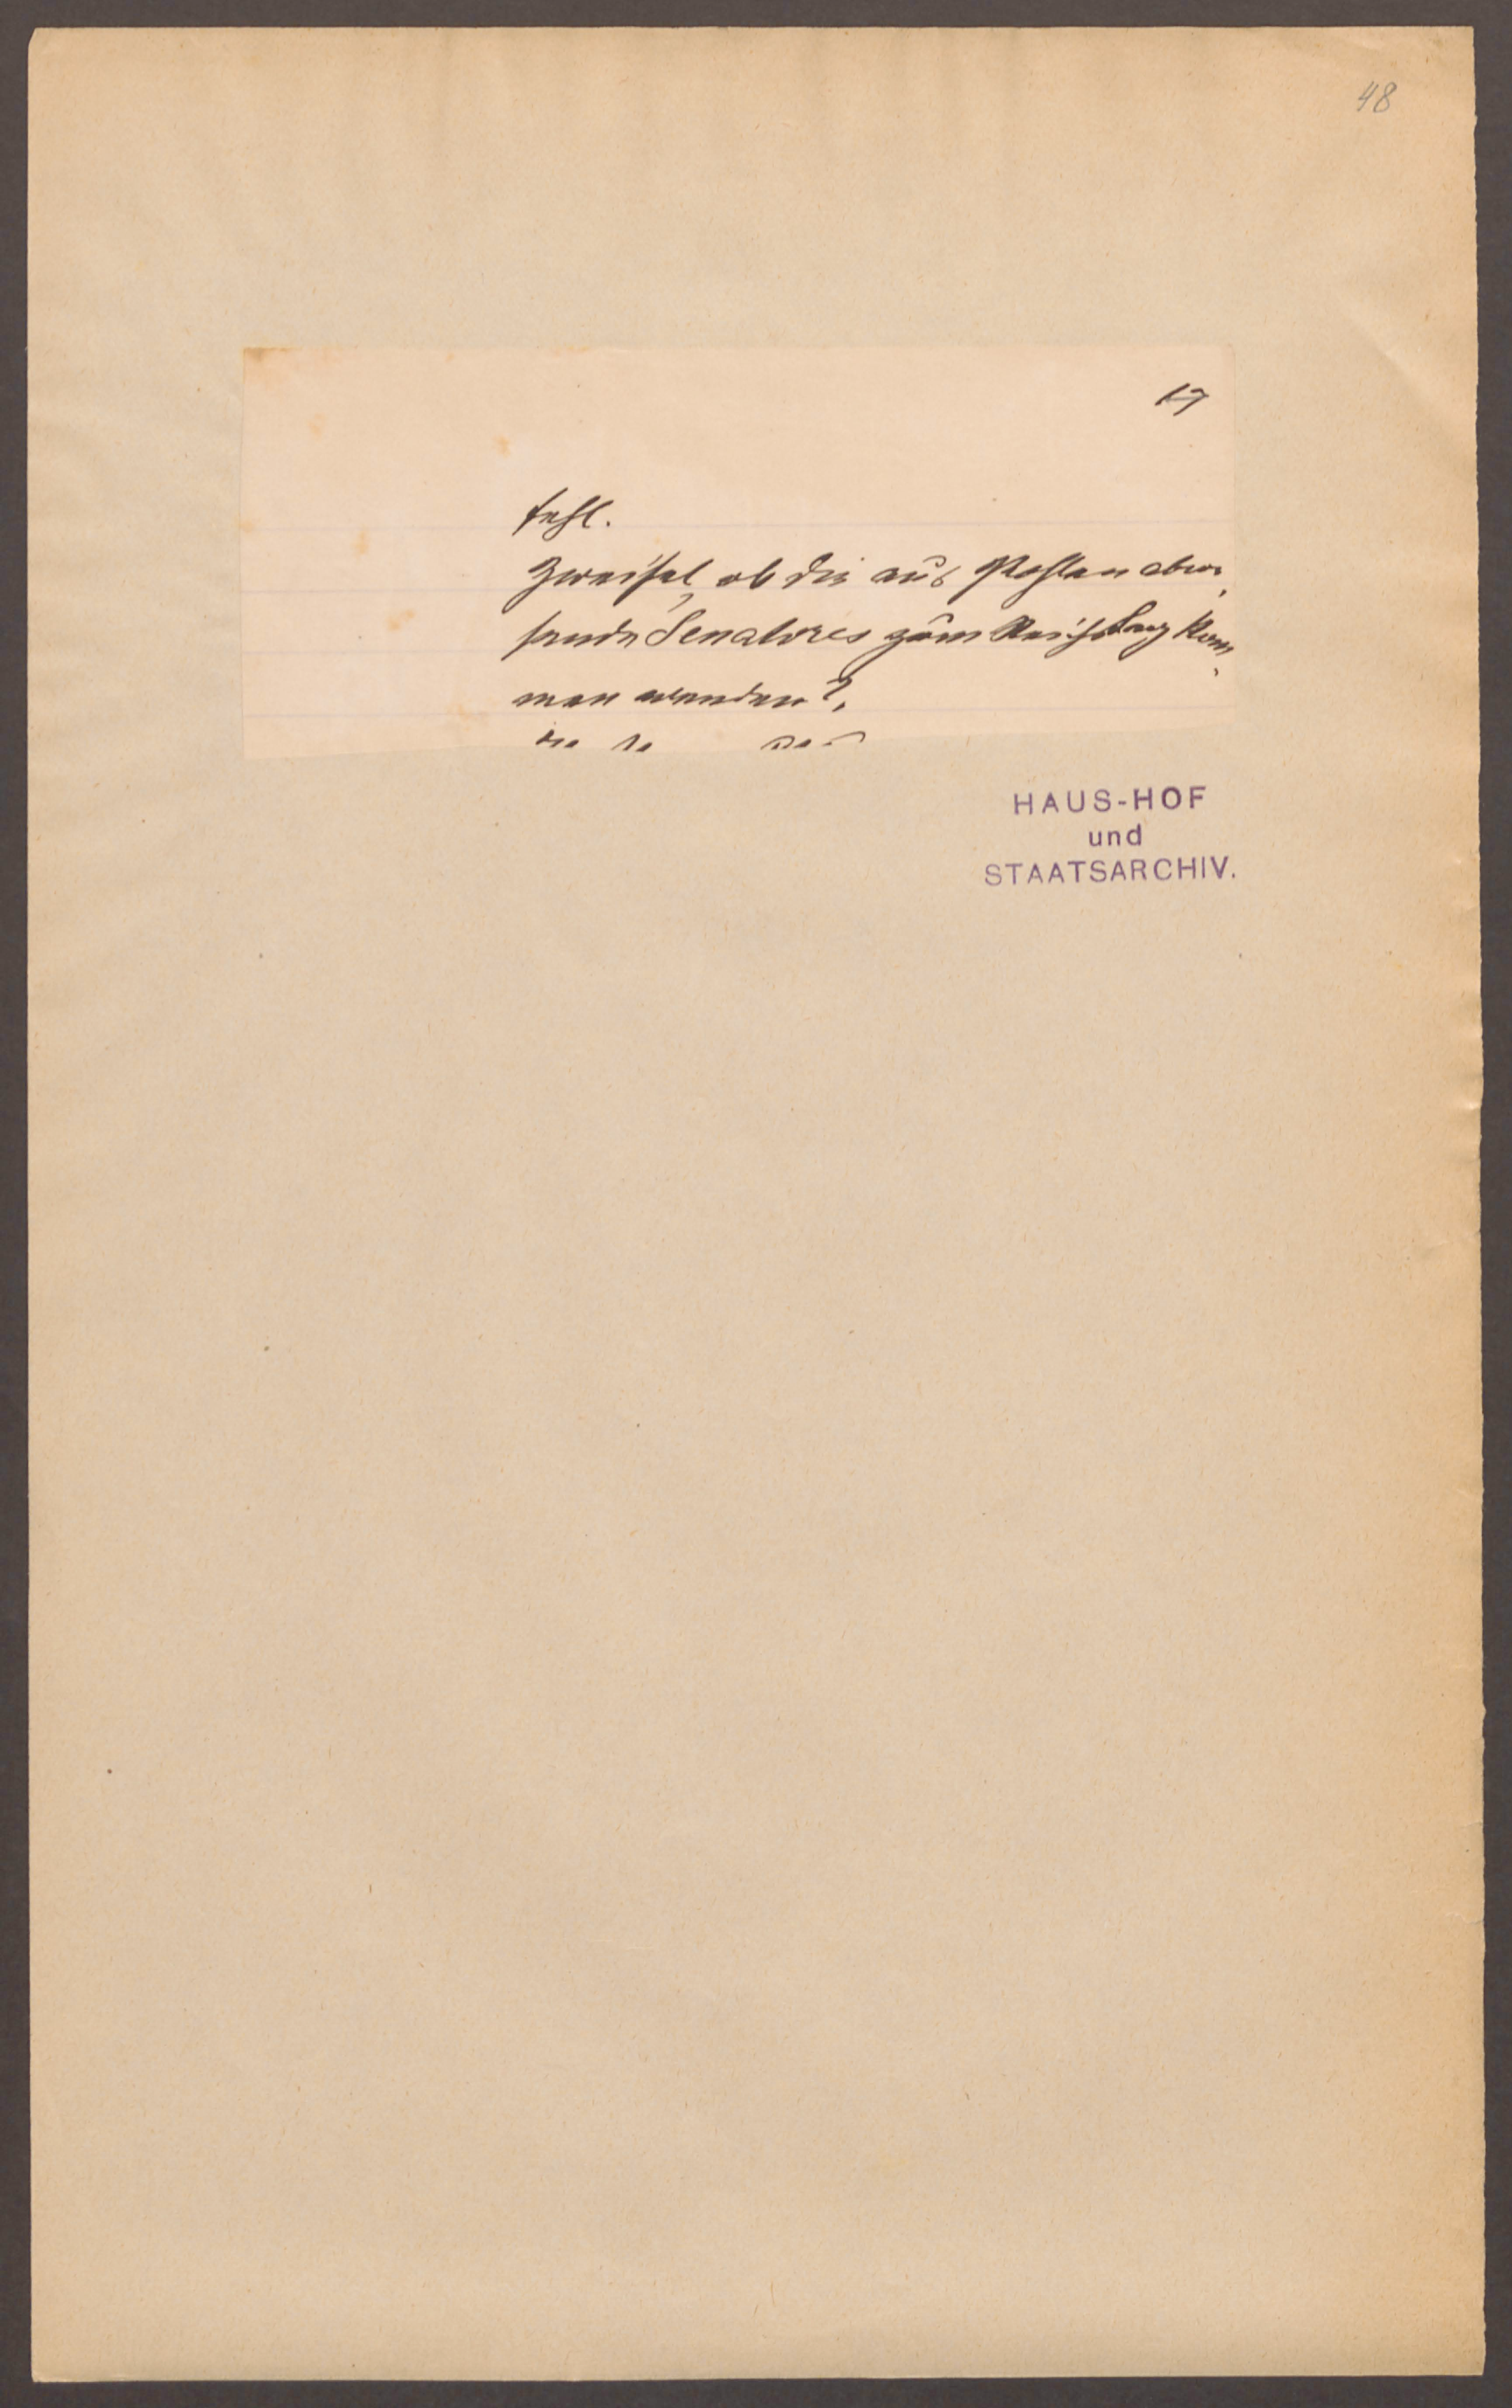 48
17
fehl.
Zweifel, ob die aus Pohlen abwe,
sende Senatores zum Reichstag kom,
men werden?,
HAUS-HOF
und
STAATSARCHIV.